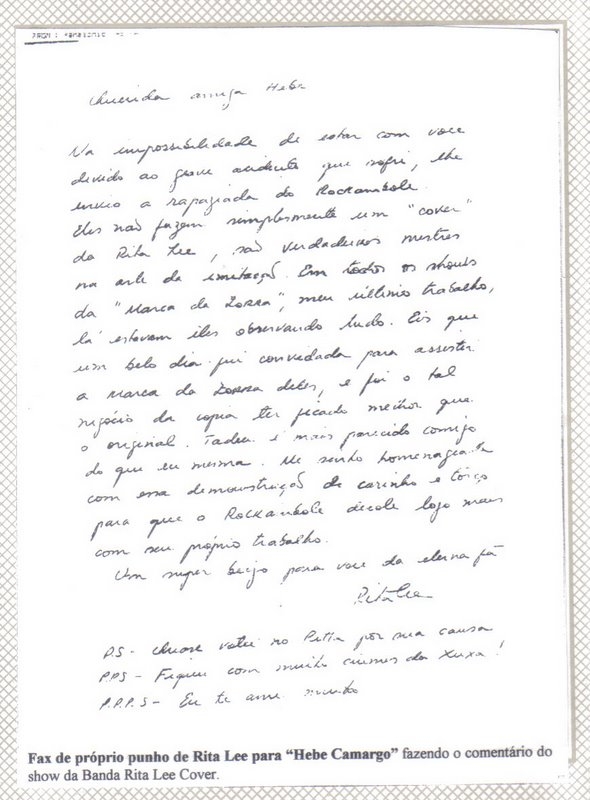 FROM : Panasonic
Querida amiga Hebe
Na impossibilidade de estar com voce
devido ao grave acidente que sofri, lhe
envio a rapaziada do Rockambole.
Eles não fazem simplesmente um "cover"
da Rita Lee, são verdadeiros mestres
na arte da imitação. Em todos os shows
da "Marca da Zorra", meu último trabalho,
lá estavam eles observando tudo. Eis que
um belo dia fui convidada para assistir
a Marca da Zorra deles, e foi o tal
negócio da copia ter ficado melhor que
o original. Tadeu é mais parecido comigo
do que eu mesma. Me sinto homenageada
com essa demonstração de carinho e torço
para que o Rockambole decole logo mais
com seu próprio trabalho.
Um super beijo para voce da eterna fã
Rita Lee
PS - Quase votei no Pitta por sua causa
P.PS - Fiquei com muito ciumes da Xuxa!
P.P.P.S - Eu te amo muito
Fax de próprio punho de Rita Lee para “Hebe Camargo” fazendo o comentário do
show da Banda Rita Lee Cover.